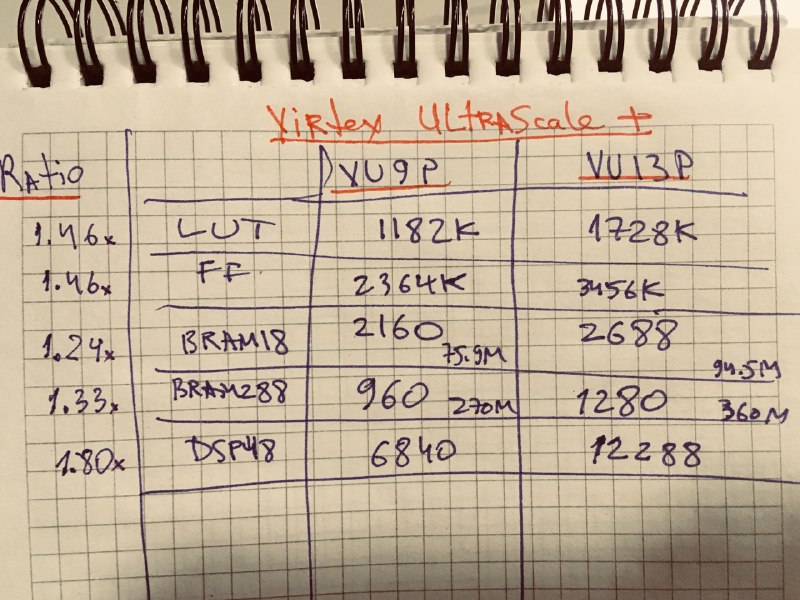 Virtex ULtRAScale +
Ratio VU9P VU13P
1.46x LUT 1182K 1728K
1.46x FF 2364K 3456K
1.24x BRAM18 2160 75.9M 2688 94.5M
1.33x BRAM288 960 270M 1280 360M
1.80x DSP48 6840 12288